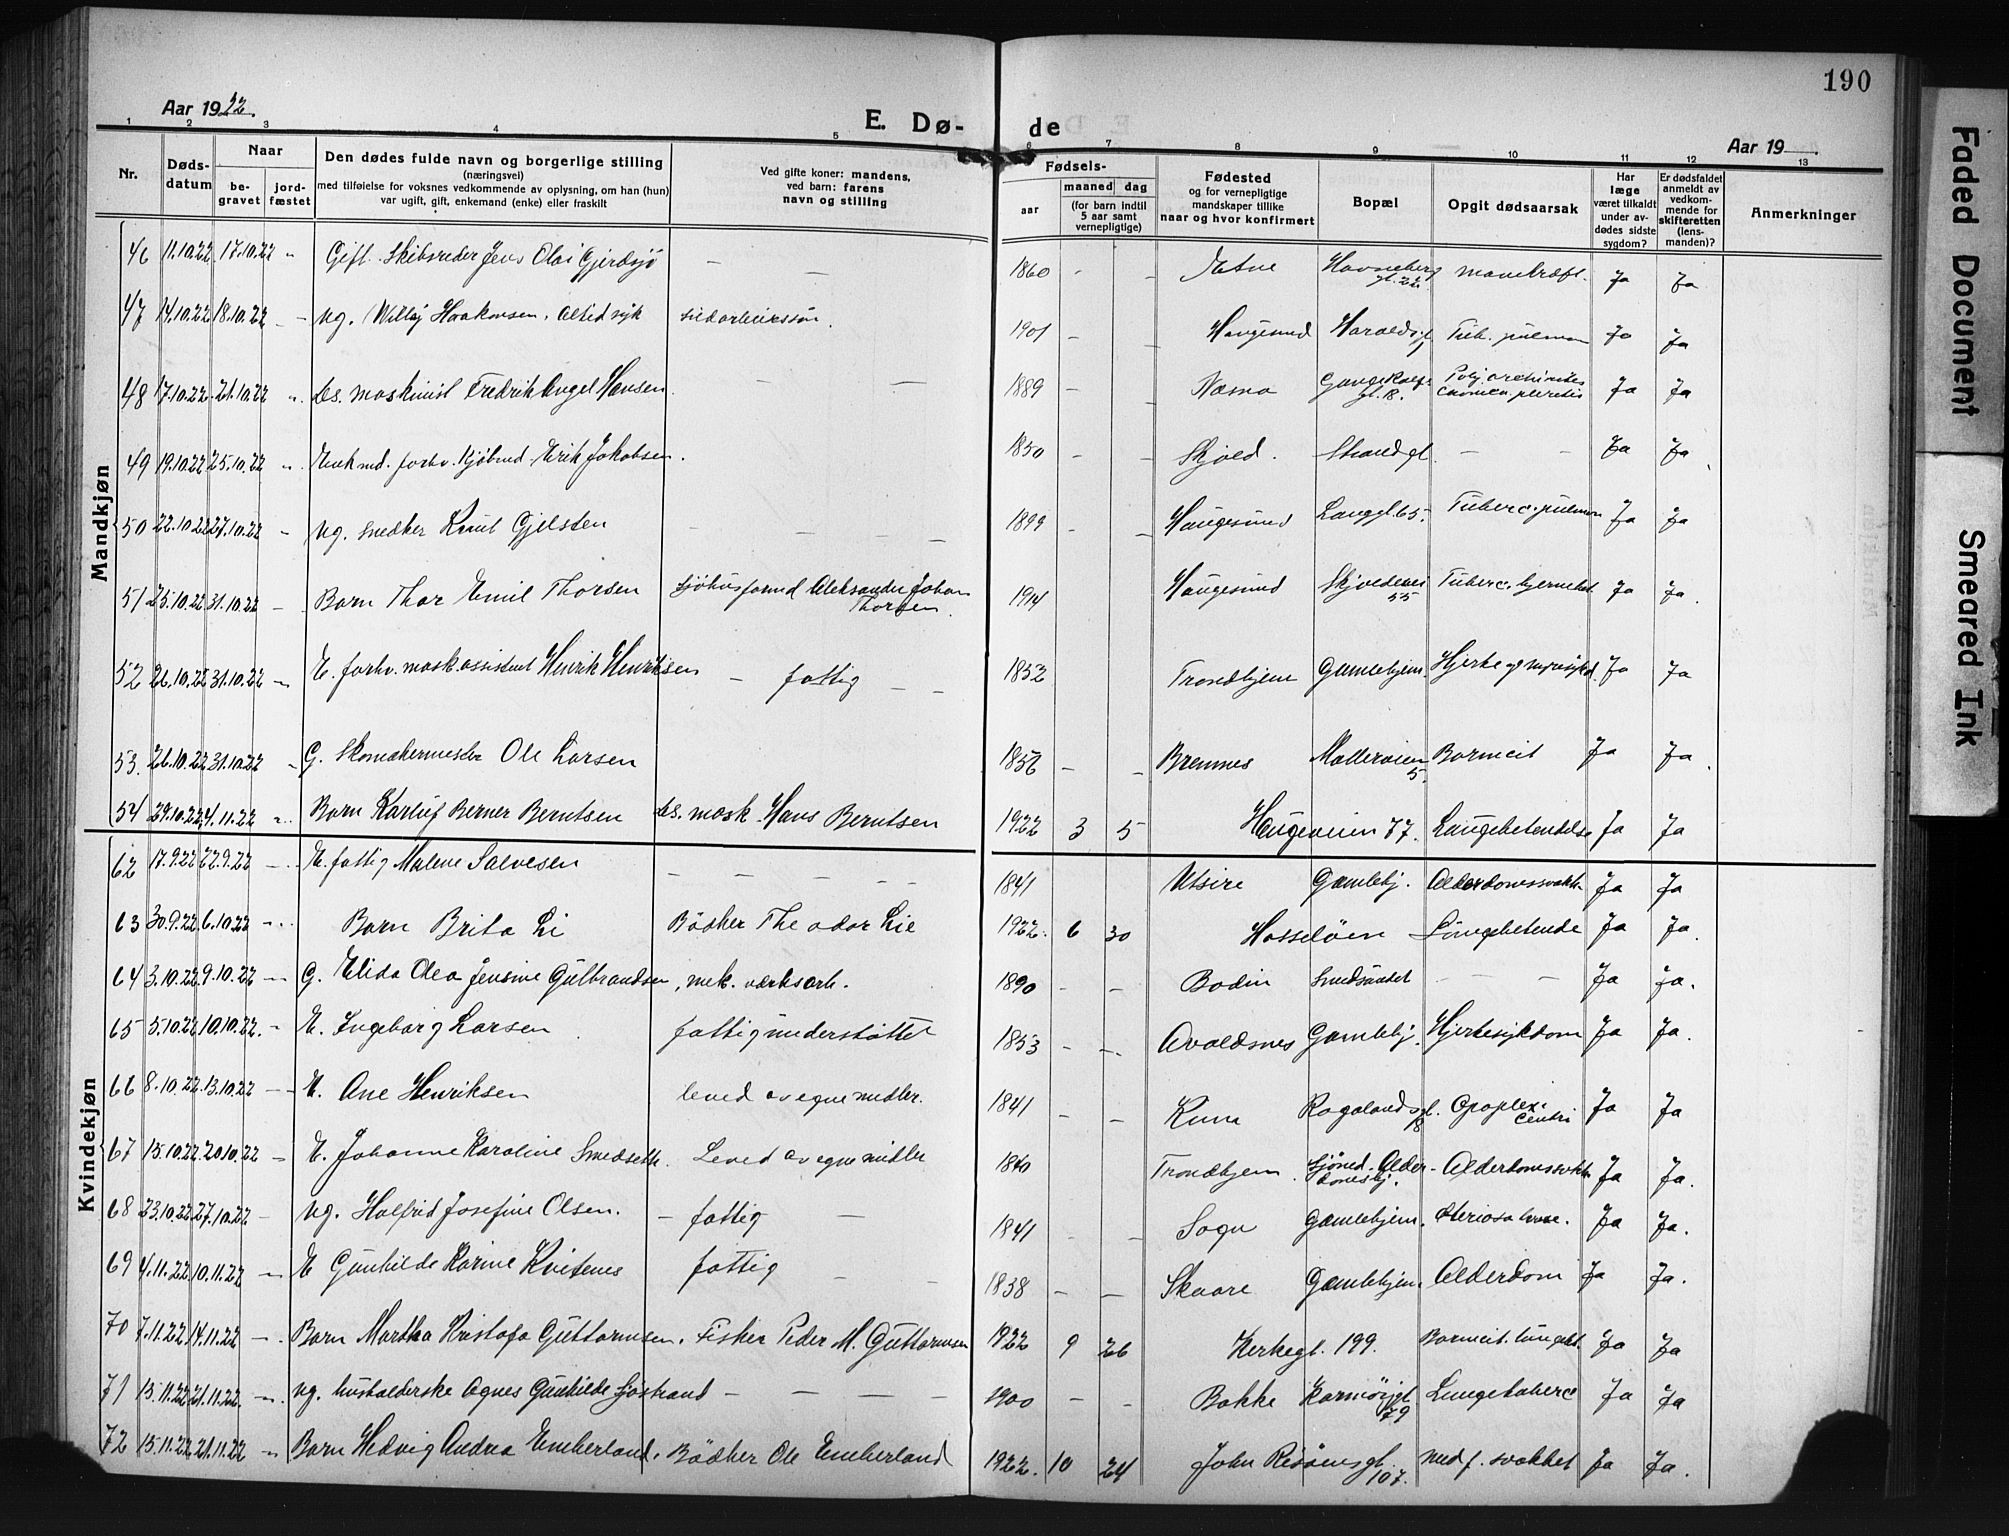 190
Aar 1922.
E. Dø- de
Aar 19
1 2 3 4 5 6 7 8 9 10 11 12 13
Nr. Døds-datum Naar be-gravet jord-fæstet Den dødes fulde navn og borgerlige stilling (næringsvei) med tilføielse for voksnes vedkommende av oplysning, om han (hun) var ugift, gift, enkemand (enke) eller fraskilt Ved gifte koner: mandens, ved barn: farens navn og stilling Fødsels- aar maaned dag (for barn indtil 5 aar samt vernepligtige) Fødested og for vernepligtige mandskaper tillike naar og hvor konfirmert Bopæl Opgit dødsaarsak Har læge været tilkaldt under av-dødes sidste sygdom? Er dødsfaldet anmeldt av vedkom-mende for skifteretten (lens-manden)? Anmerkninger
Mandkjøn
46 11.10.22 17.10.22 " Gift. Skibsreder Jens Olai Gjerdsjø — — 1860 - - Etne Havneberg gt. 22. Ja Ja
47 14.10.22 18.10.22 - - ug. Willy Haakonsen. Altid syk sildarbeiersson. 1901 - - Haugesund Haraldsgt. Tub. pulmon Ja Ja
48 17.10.22 21.10.22 ". bs. maskinist Fredrik Angel Hansen. — — 1889 - - Næsna Gange Rolfs gt. 18. Ja Ja
49 19.10.22 25.10.22 ". Enkmd. forhv. Kjøbmd. Erik Jakobsen. 1850 - - Skjold. Strandgt. — — Ja Ja
50 22.10.22 27.10.22 - ug. snedker Knut Gjelsten — — — 1899 - - Haugesund Langgt. 65. Tuberc. pulmon Ja Ja
51 25.10.22 31.10.22 - Barn Thor Emil Thorsen Sjøhusformd Aleksander Johan Thorsen. 1914 Haugesund Skjoldavei 55 Tuberc. hjernehet. Ja Ja.
52 26.10.22 31.10.22 - E. forhv. mask.assistent Henrik Henriksen — fattig — — 1852 Trondhjem Gamlehjem. Hjerte og nyresykd. Ja Ja
53. 26.10.22 31.10.22 - G. Skomakermester Ole Larsen 1856 — — Bremnes Møllerveien 5. Ja Ja.
54 29.10.22 4.11.22 ". Barn Karluf Berner Berntsen bs. mask. Hans Berntsen 1922 3 5 Haugeveien 77. Lungebetendelse Ja Ja
Kvindekjøn
62 17.9.22 22.9.22 - - E. fattig Malene Salvesen — — — — — 1841 Utsire Gamlehj. Alderdomssvakh. Ja Ja
63 30.9.22 6.10.22 - - Barn Brita Li Bødker Theodor Lie 1922. 6 30 Hasseløen Lungebetende Ja Ja.
64 3.10.22 9.10.22 - - G. Elida Olea Jensine Gulbrandsen, mek. værksarb. 1890 - - Bodin Smedsundet — — Ja Ja.
65 5.10.22 10.10.22. - E. Ingeborg Larsen fattigunderstøttet 1853 — —. Avaldsnes Gamlehj. Hjertesykdom Ja Ja.
66 8.10.22 13.10.22 - - E. Ane Henriksen leved av egne midler. 1841 — — Rogalandsgt. 18. Apoplexi Ja Ja
67 15.10.22. 20.10.22 - E. Johanne Karoline Smedseth. Leved av egne midler 1840 Trondhjem. Sjømd. Alder-domshj. - Alderdomssvakh. Ja Ja.
68 23.10.22 27.10.22 - ug. Halfrid Josefine Olsen. — fattig — 1841 - - Sogn Gamlehjem. Ja Ja.
69 4.11.22 10.11.22 - E Gunhilde Karine Kvitenes fattig — — 1838 — — Skaare Gamlehjem. Alderdom Ja Ja.
70 7.11.22. 14.11.22 - . Barn Martha Kristofa Guttormsen. Fisker Peder M. Guttormsen 1922 9 26 Kirkegt. 199. Ja Ja
71 15.11.22 21.11.22. - . ug. husholderske Agnes Gunhilde Sjøstrand — — — — 1900 - - Bakke Karmøygt. 79 Lungetuberc Ja Ja
72 15.11.22 21.11.22 " Barn Hedvig Andrea Emberland. Bødker Ole Emberland 1922. 10 24 John Risøensgt. 107. med f. svakhet Ja Ja.
Faded Document
Smeared Ink